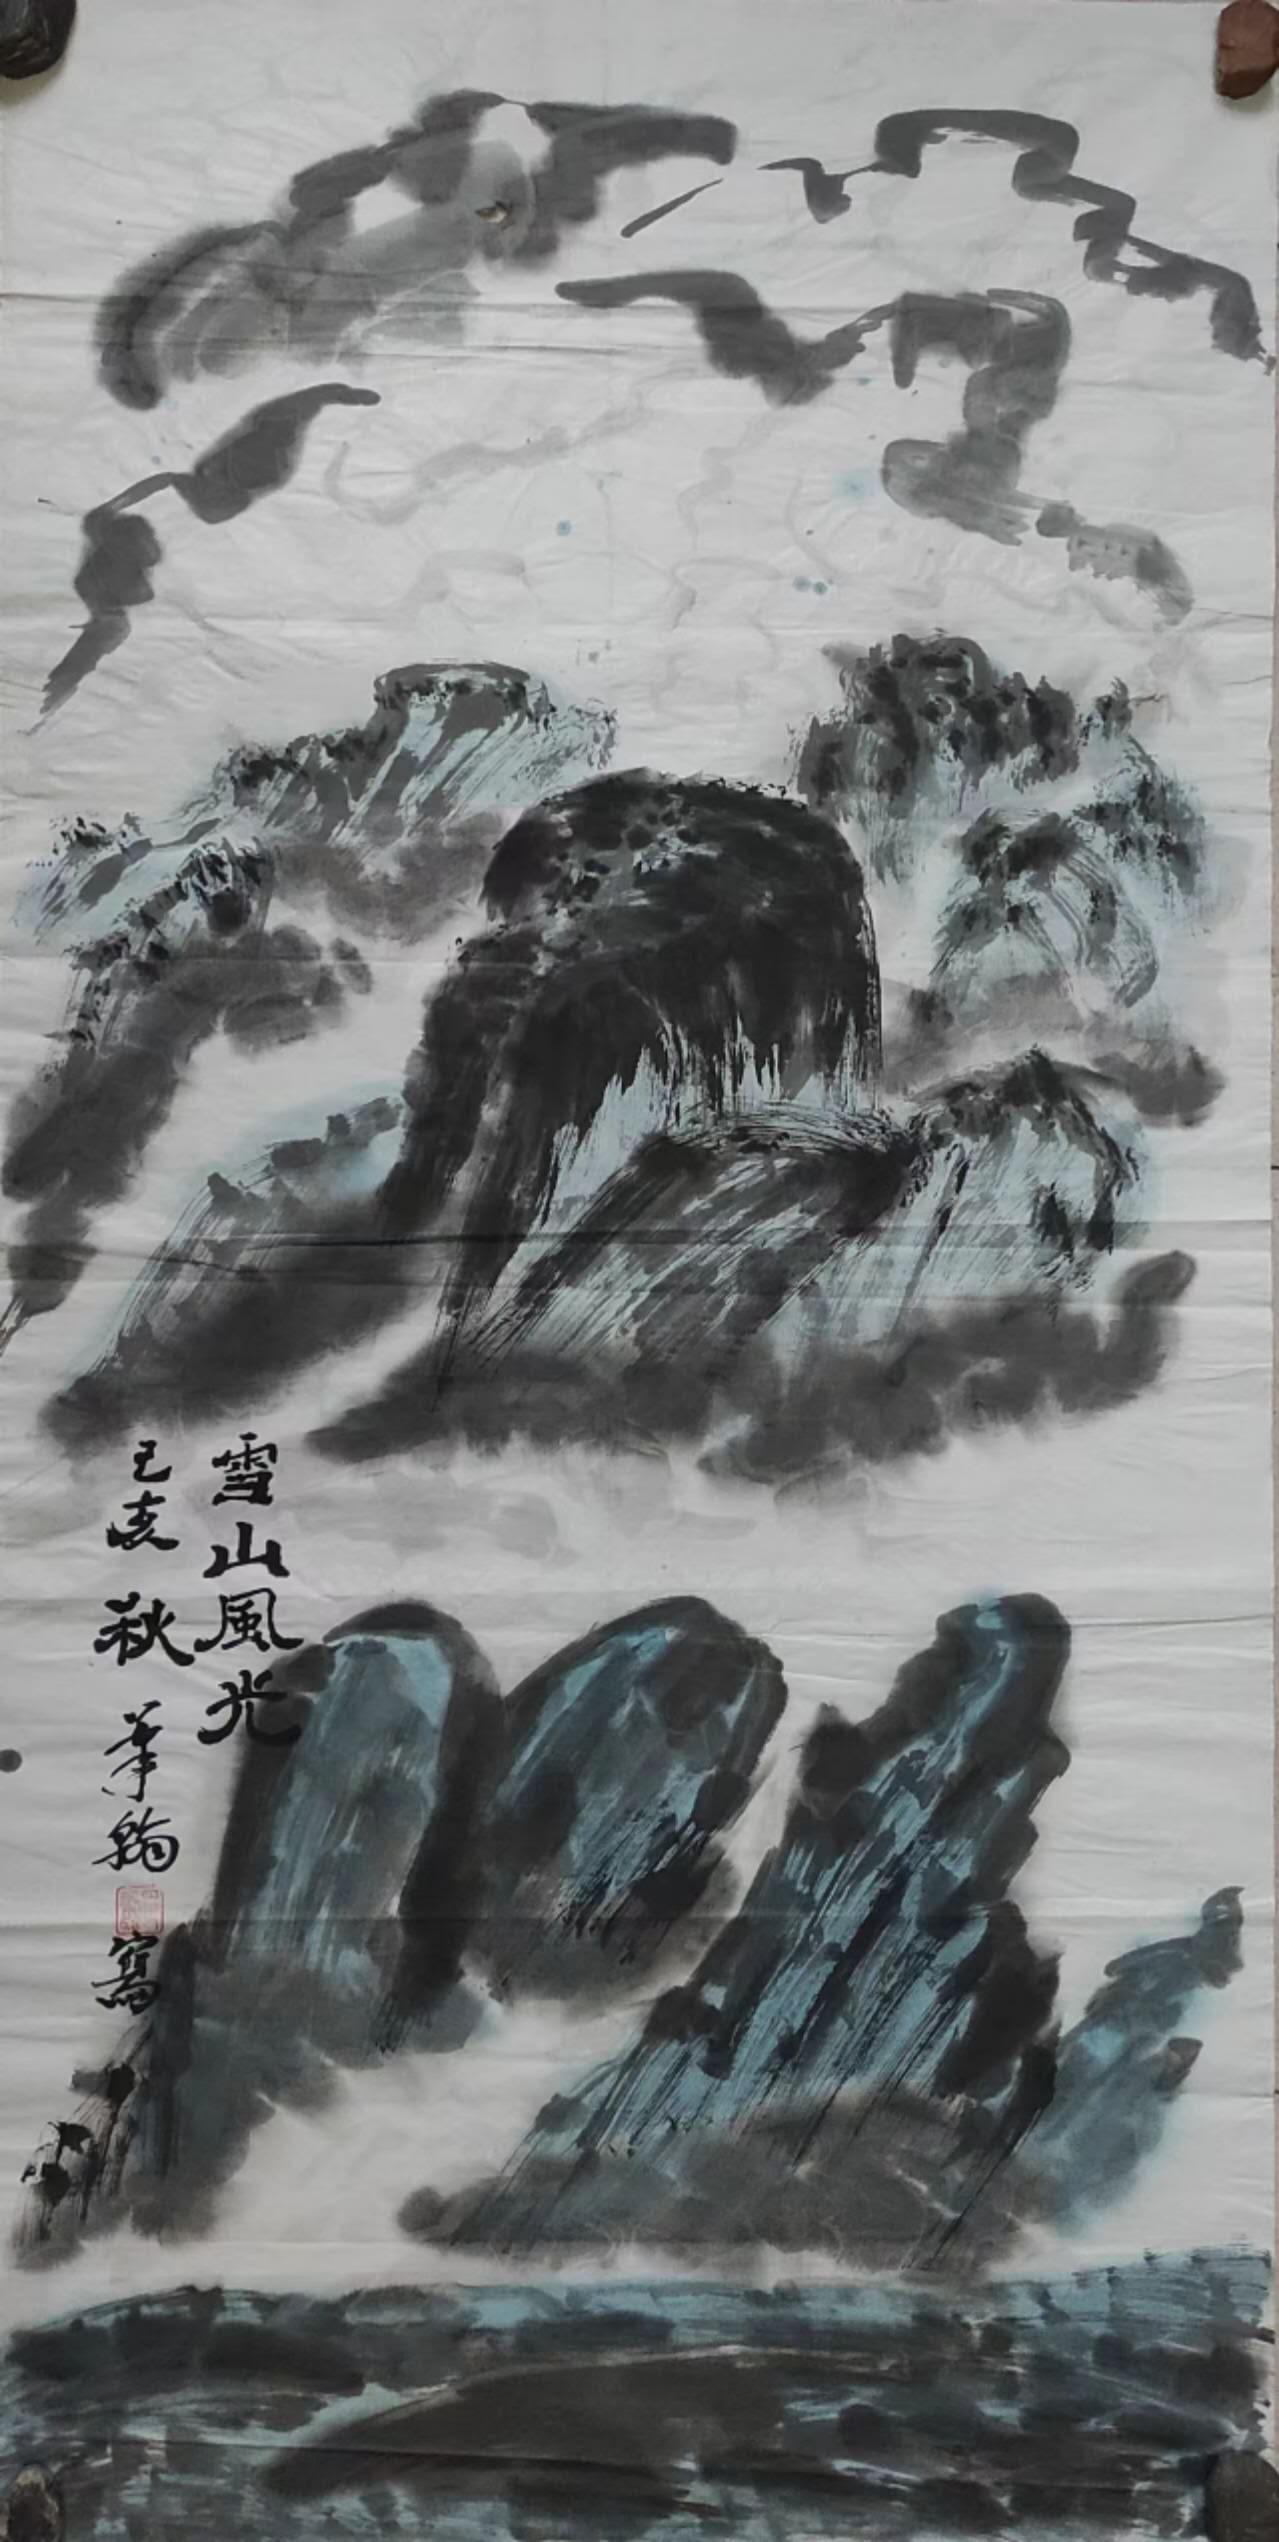 雪山風光
己亥 秋 筆翰 寫